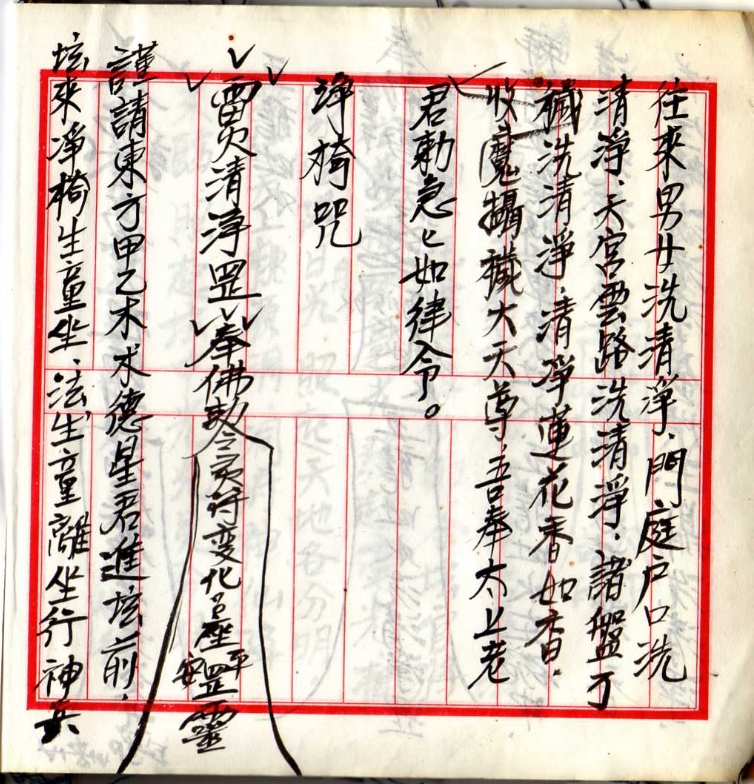 往來男女洗清淨、門庭戶口洗
清淨、天宮雲路洗清淨、諸盤丁
穢洗清淨、清淨蓮花香如香、
收魔攝穢大天尊、吾奉太上老
君勅急々如律令。
淨椅咒
清淨罡 奉佛敕令 符变化 座平安罡靈
謹請東方甲乙木 木德星君進坛前、
坛來淨椅生童坐、法生童離坐行神兵